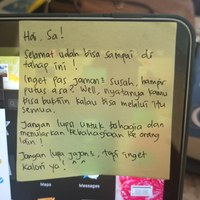 Hai, Sa!
Selamat udah bisa sampai di
tahap ini!
Inget pas jaman2 susah, hampir
putus asa? Well, nyatanya kamu
bisa buktiin kalau bisa melalui itu
semua.
Jangan lupa untuk bahagia dan
menularkan kebahagiaan ke orang
lain!
Jangan lupa jajan!, tapi inget
kalori ya! ^^
Maps
Messages